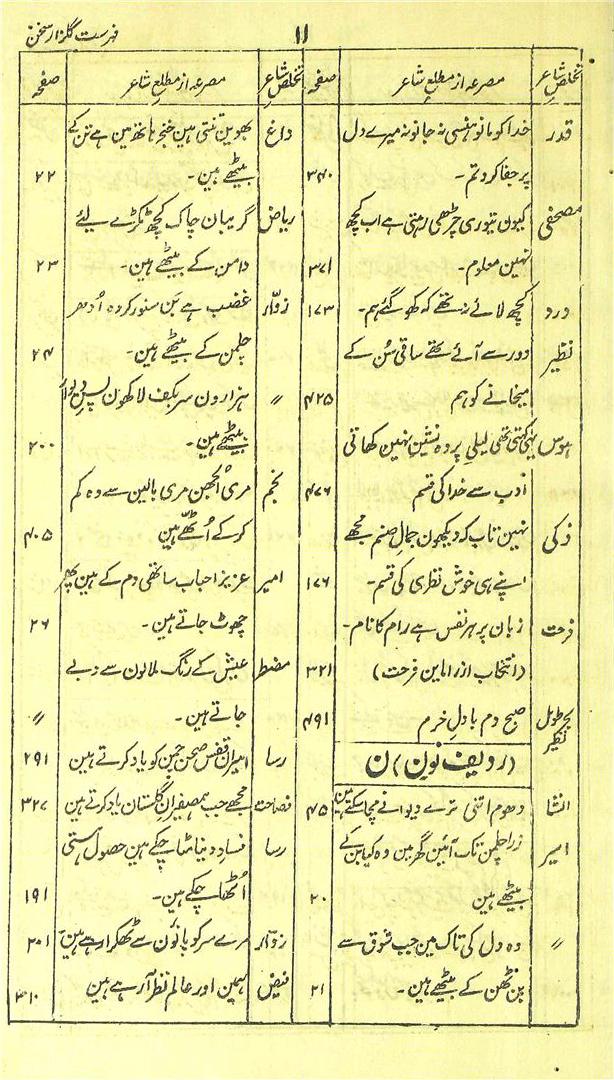 فہرست گلزار سخن
۱۱
تخلص شاعر
مصرعہ از مطلع شاعر
صفحہ
قدر
خدا کو مانو ہنسی نہ جانو نہ میرے دل
پر جفا کرو تم۔
۳۴۰
مصحفی
کیون تیوری چڑھی رہتی ہے اب کچھ
نہین معلوم۔
۳۷۱
درد
کچھ لائے نہ تھے کہ کھو گئے ہم۔
۱۷۳
نظیر
دور سے آئے تھے ساقی سُن کے
میخانے کو ہم
۴۲۵
ہوس
یہی کہتی تھی لیلیِ پردہ نشین نہین کھاتی
ادب سے خدا کی قسم
۴۷۶
ذکی
نہین تاب کہ دیکھون جمال صنم مجھے
اپنے ہی خوش نظری کی قسم۔
۱۷۶
فرحت
زبان پر ہر نفس ہے رام کا نام۔
(انتخاب از رامایٔن فرحت)
۳۲۱
بحر طویل
نظیر
صبح دم با دلِ خرم
۴۹۱
(ردیف نون) ن
انشا
دھوم اتنی ترے دیوانے مچا سکتے ہین
۴۵
امیر
ذرا چلمن تک آئین گھر مین وہ کیا بن کے
بیٹھے ہین
۲۰
〃
وہ دل کی تاک مین جب شوق سے
بن ٹھن کے بیٹھے ہین۔
۲۱
تخلص شاعر
مصرعہ از مطلع شاعر
صفحہ
داغ
بھوین تنتی ہین خنجر ہاتھ مین ہے تن کے
بیٹھے ہین۔
۲۲
ریاض
گریبان چاک کچھ ٹکڑے لیٔے
دامن کے بیٹھے ہین۔
۲۳
زوّار
غضب ہے بَن سنور کر وہ اُدھر
چلمن کے بیٹھے ہین۔
۲۴
〃
ہزارون سر بکف لاکھون پسِ دیوار
بیٹھے ہین۔
۲۰۰
نجم
مری اُلجھن مری بالین سے وہ کم
کر کے اُٹھّے ہین
۴۰۵
امیر
عزیز احباب ساتھی دم کے ہین پھر
چھوٹ جاتے ہین۔
۲۶
مضطر
عیش کے رنگ ملالون سے دبے
جاتے ہین۔
〃
رسا
اسیرانِ قفس صحن چمن کو یاد کرتے ہین
۲۹۱
فصاحت
مجھے جب ہمصفیرانِ گلستان یاد کرتے ہین
۳۲۷
رسا
فساد دنیا مٹا چکے ہین حصول ہستی
اُٹھا چکے ہین۔
۱۹۱
زوّار
مرے سر کو پانوٗن سے ٹھکرا رہے ہین
۲۰۱
فیض
ہمین اور عالم نظر آ رہے ہین
۳۱۰